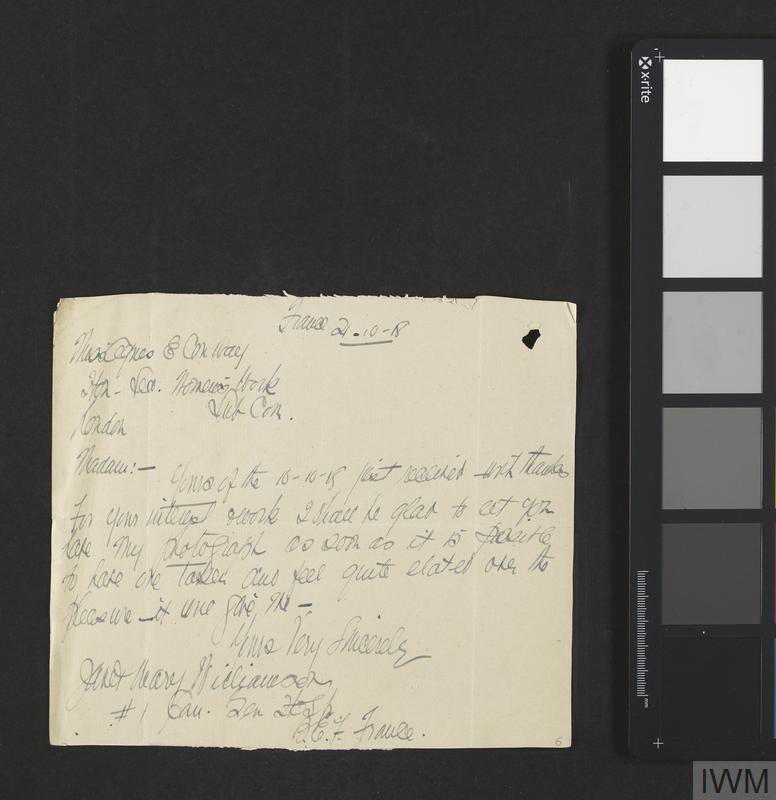 France 21-10-18
Miss Agnes E Conway
Hon- Sec. Women's Work
Sub Com.
London
Madam:-
Yours of the 10-10-18 just received with thanks
for your interest & work I shall be glad to let you
have my photograph as soon as it is possible
to have one taken and feel quite elated over the
pleasure - it will give me -
Yours Very Sincerely
Janet Mary Williamson
#1 Can. Gen Hosp
B.E.F. France.
6
x-rite
mm
IWM